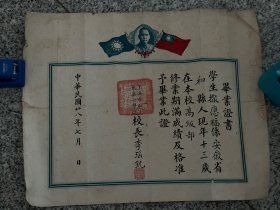 畢業證書
學生撒應福係安徽省
和縣人現年十三歲
在本校高級部
修業期滿成績及格准
予畢業此證
校長李
中華民國廿八年七月 日